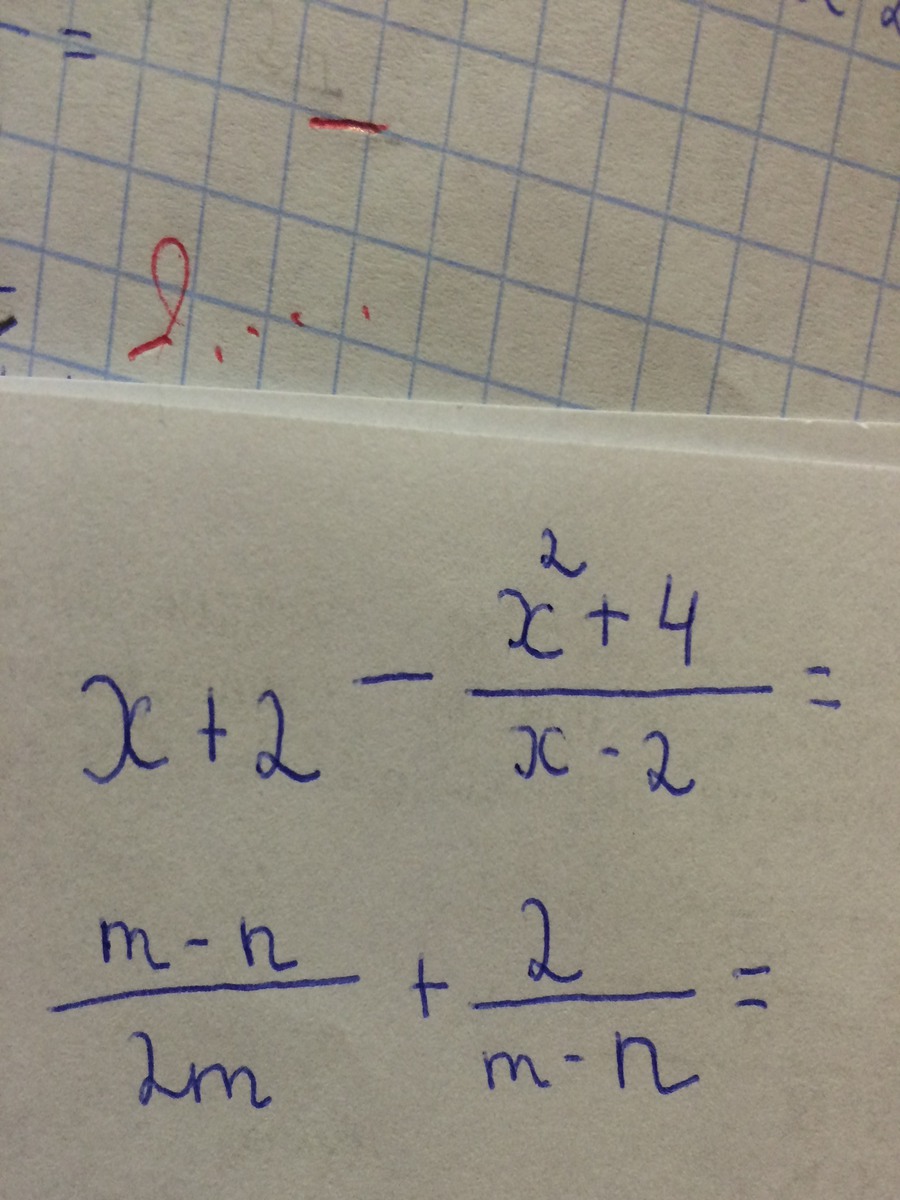 =
x + 2 - \frac{x^2 + 4}{x - 2} =
\frac{m - n}{2m} + \frac{2}{m - n} =